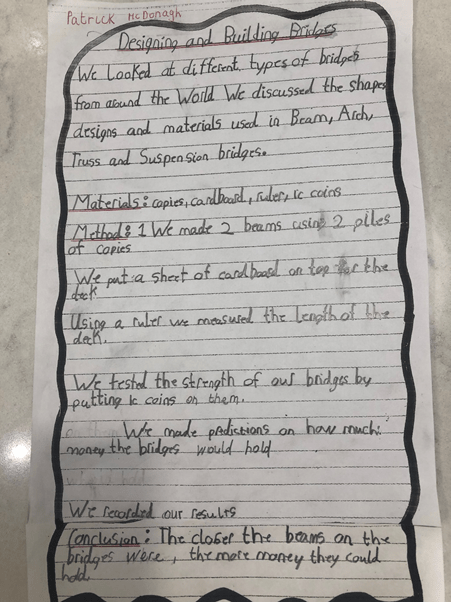 Patrick McDonagh
Designing and Building Bridges
We Looked at different types of bridges
from around the World We discussed the shapes
designs and materials used in Beam, Arch,
Truss and Suspension bridges.
Materials: copies, cardboard, ruler, 1c coins
Method: 1 We made 2 beams using 2 piles
of copies
We put a sheet of cardboard on top for the
deck
Using a ruler we measured the length of the
deck.
We tested the strength of our bridges by
putting 1c coins on them.
We made predictions on how much
money the bridges would hold
We recorded our results
Conclusion: The closer the beams on the
bridges were, the more money they could
hold.